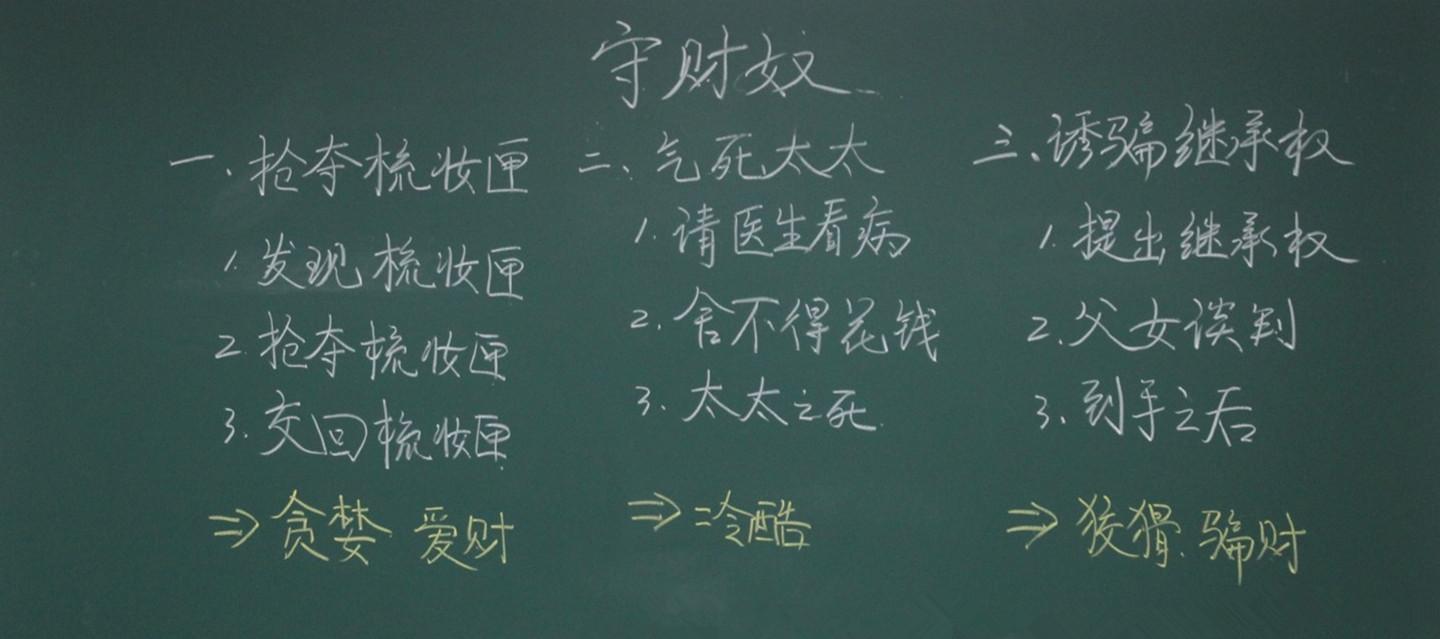 守财奴
一、抢夺梳妆匣
1.发现梳妆匣
2.抢夺梳妆匣
3.交回梳妆匣
⇒贪婪 爱财
二、气死太太
1.请医生看病
2.舍不得花钱
3.太太之死
⇒冷酷
三、诱骗继承权
1.提出继承权
2.父女谈判
3.到手之后
⇒狡猾、骗财